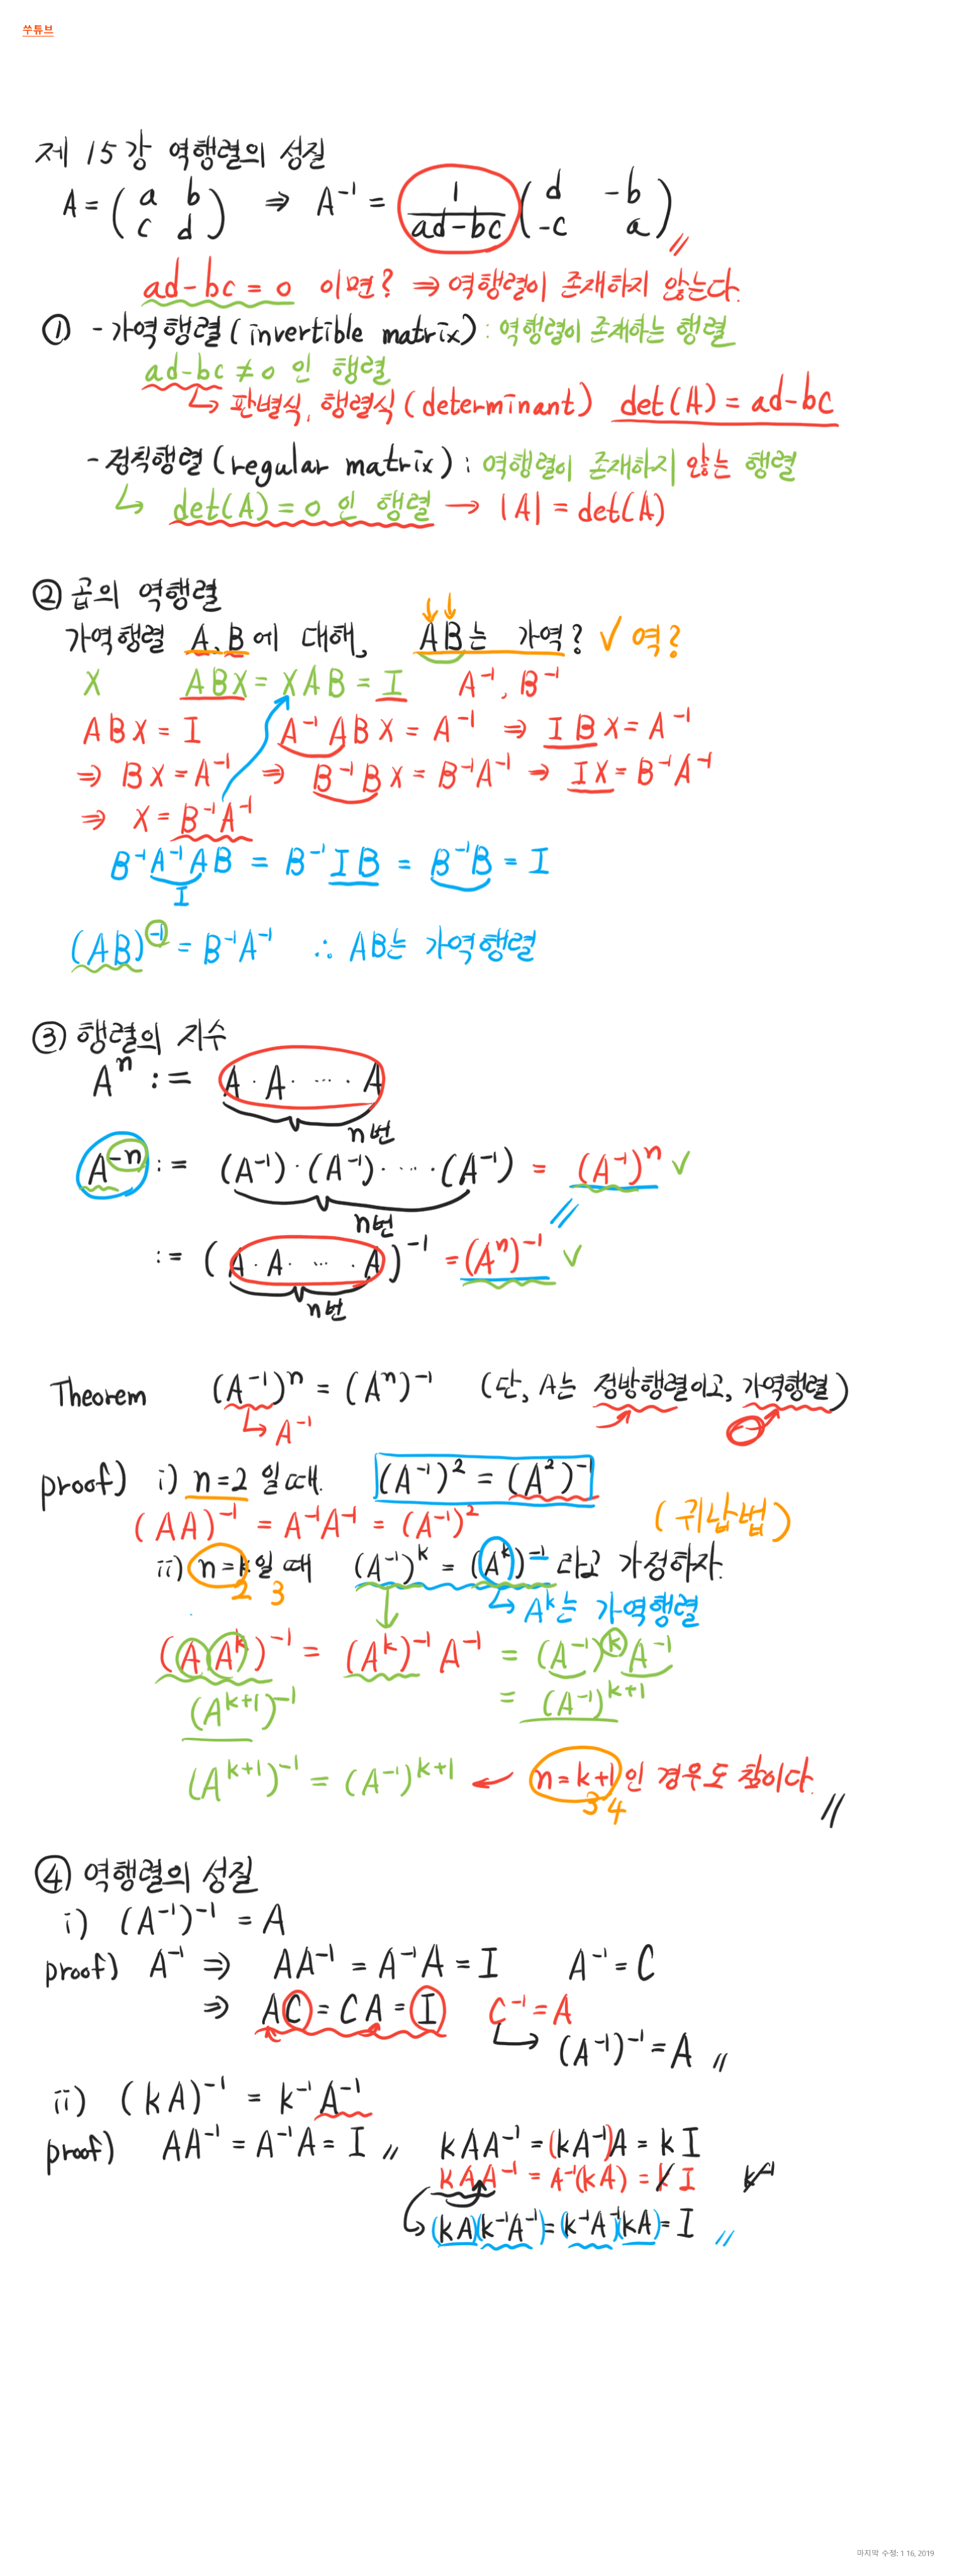 쑤튜브
제 15강 역행렬의 성질
A = ( a b c d ) ⇒ A⁻¹ = 1/(ad-bc) ( d -b -c a ) //
ad-bc = 0 이면? ⇒ 역행렬이 존재하지 않는다.
① - 가역행렬 (invertible matrix) : 역행렬이 존재하는 행렬
ad-bc ≠ 0 인 행렬
↳ 판별식, 행렬식 (determinant) det(A) = ad-bc
- 정칙행렬 (regular matrix) : 역행렬이 존재하지 않는 행렬
↳ det(A) = 0 인 행렬 → |A| = det(A)
② 곱의 역행렬
가역행렬 A, B에 대해, AB는 가역? ✓ 역?
X ABX = XAB = I A⁻¹, B⁻¹
ABX = I A⁻¹ABX = A⁻¹ ⇒ IBX = A⁻¹
⇒ BX = A⁻¹ ⇒ B⁻¹BX = B⁻¹A⁻¹ ⇒ IX = B⁻¹A⁻¹
⇒ X = B⁻¹A⁻¹
B⁻¹A⁻¹AB = B⁻¹IB = B⁻¹B = I
I
(AB)⁻¹ = B⁻¹A⁻¹ ∴ AB는 가역행렬
③ 행렬의 지수
Aⁿ := A · A · ⋯ · A
n번
A⁻ⁿ := (A⁻¹)·(A⁻¹)·⋯·(A⁻¹) = (A⁻¹)ⁿ ✓
n번 //
:= (A · A · ⋯ · A)⁻¹ = (Aⁿ)⁻¹ ✓
n번
Theorem (A⁻¹)ⁿ = (Aⁿ)⁻¹ (단, A는 정방행렬이고, 가역행렬)
↳ A⁻¹
proof) i) n=2 일때. (A⁻¹)² = (A²)⁻¹
(AA)⁻¹ = A⁻¹A⁻¹ = (A⁻¹)² (귀납법)
ii) n=k일 때 (A⁻¹)ᵏ = (Aᵏ)⁻¹ 라고 가정하자.
2 3 ↳ Aᵏ는 가역행렬
(A Aᵏ)⁻¹ = (Aᵏ)⁻¹A⁻¹ = (A⁻¹)ᵏA⁻¹
(Aᵏ⁺¹)⁻¹ = (A⁻¹)ᵏ⁺¹
(Aᵏ⁺¹)⁻¹ = (A⁻¹)ᵏ⁺¹ ← n=k+1인 경우도 참이다. //
3 4
④ 역행렬의 성질
i) (A⁻¹)⁻¹ = A
proof) A⁻¹ ⇒ AA⁻¹ = A⁻¹A = I A⁻¹ = C
⇒ AC = CA = I C⁻¹ = A
↳ (A⁻¹)⁻¹ = A //
ii) (kA)⁻¹ = k⁻¹A⁻¹
proof) AA⁻¹ = A⁻¹A = I // kAA⁻¹ = (kA⁻¹)A = kI
kAA⁻¹ = A⁻¹(kA) = kI k⁻¹
↳ (kA)(k⁻¹A⁻¹) = (k⁻¹A⁻¹)(kA) = I //
마지막 수정: 1 16, 2019